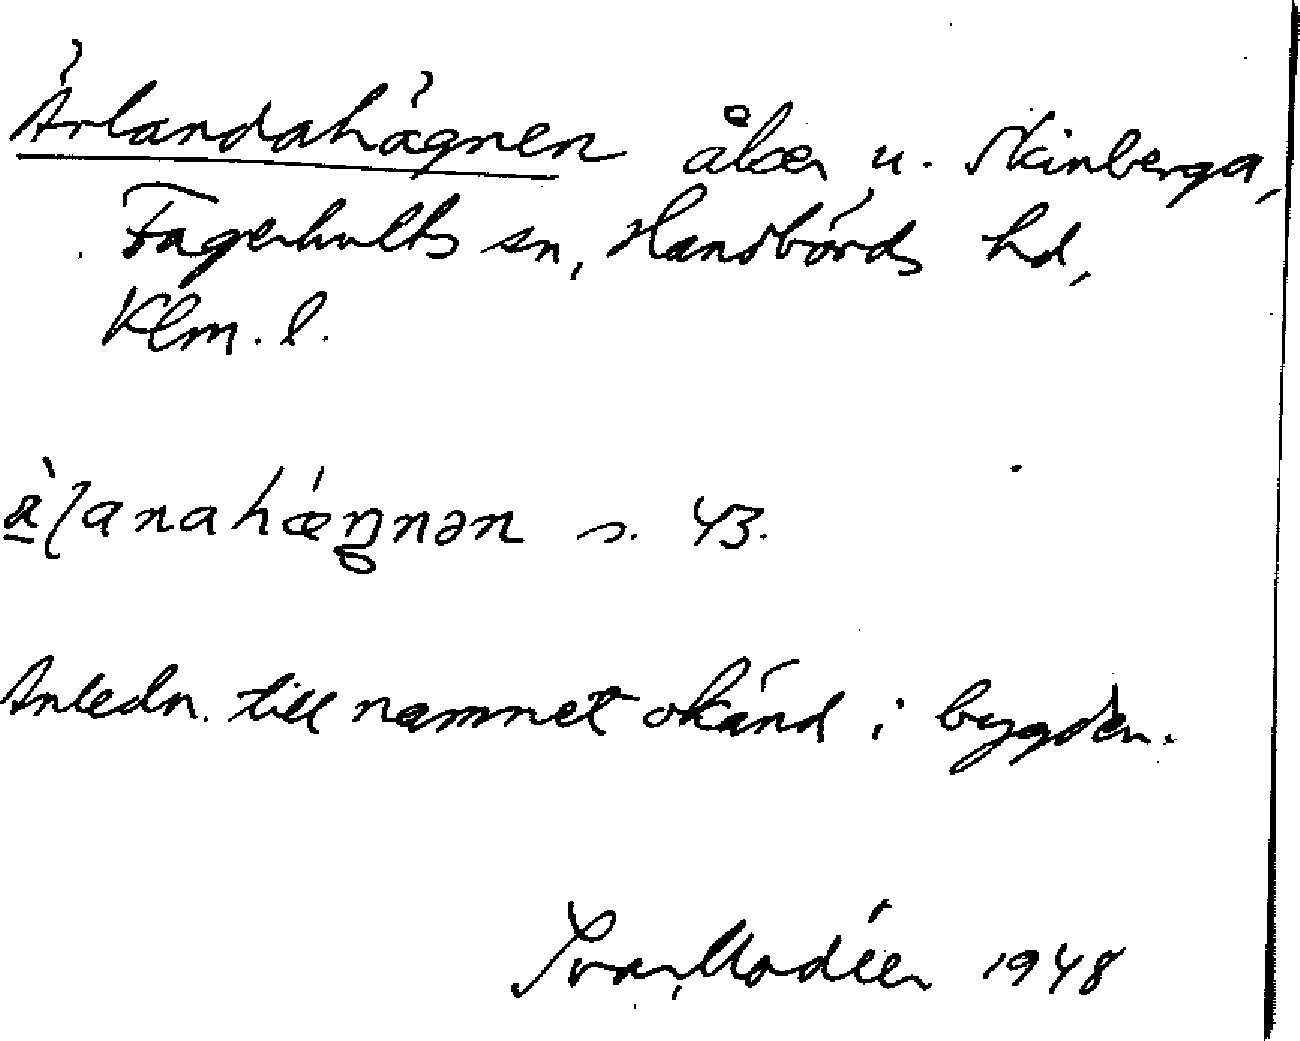 Ärlandahägnen åker u. Skinberga,
Fagerhults sn, Handbörds hd,
Klm. l.
s. 43.
Anledn. till namnet okänd i bygden.
Ivar Modéer 1948